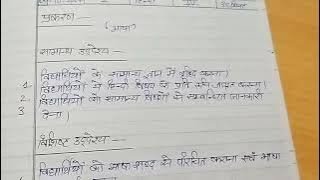 हिन्दी
प्रकरण —
(भाषा)
सामान्य उद्देश्य —
1- विद्यार्थियों के सामान्य ज्ञान में वृद्धि करना।
2- विद्यार्थियों में हिन्दी विषय के प्रति रुचि उत्पन्न करना।
3 विद्यार्थियों को सामान्य विषयों से सम्बन्धित जानकारी
देना।
विशिष्ट उद्देश्य —
विद्यार्थियों को भाषा शब्द से परिचित कराना एवं भाषा